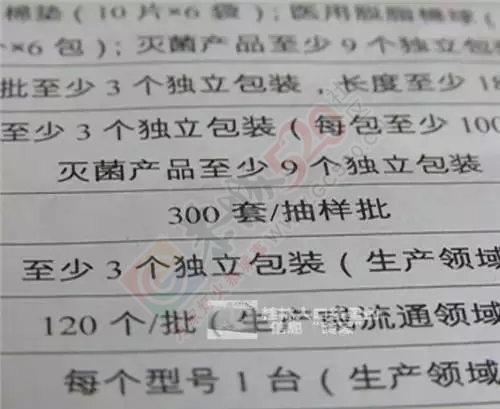 棉垫（10片×6袋）；医用脱脂棉球（
×6包）；灭菌产品至少9个独立包
批至少3个独立包装，长度至少1
至少3个独立包装（每包至少100
灭菌产品至少9个独立包装
300 套/抽样批
至少3个独立包装（生产领域
120 个/批（生产或流通领域
每个型号1台（生产领域